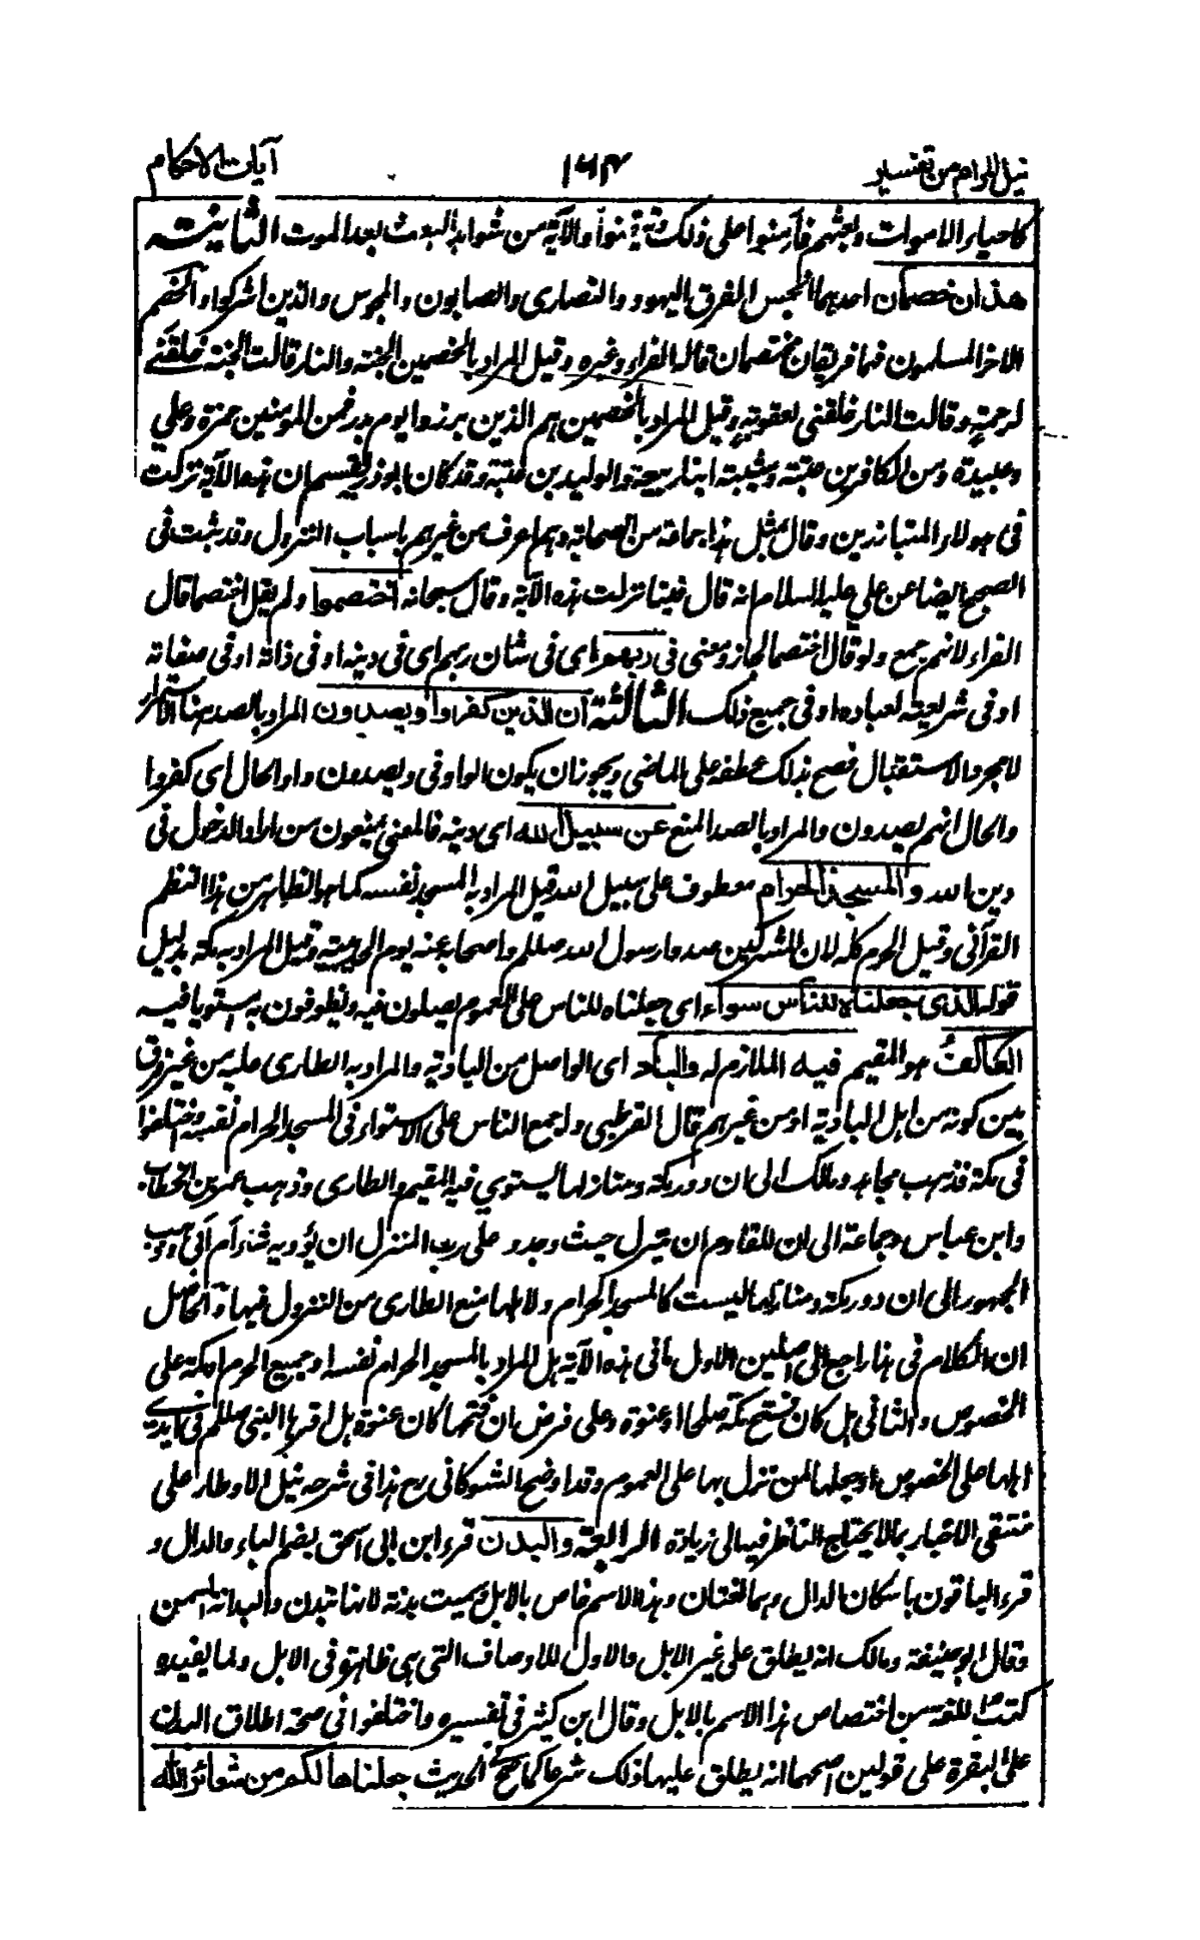 نيل المرام من تفسير ١٦٣ آيات الاحكام
كاحياء الاموات وبعثهم فآمنوا على ذلك وتيقنوا والآية من شواهد البعث بعد الموت الثانية
هذان خصمان احدهما انجس الفرق اليهود والنصارى والصابون والمجوس والذين اشركوا والخصم
الاخر المسلمون فهما فريقان مختصمان قاله الفراء وغيره وقيل المراد بالخصمين الجنة والنار قالت الجنة خلقنى
لرحمته وقالت النار خلقنى لعقوبته وقيل المراد بالخصمين هم الذين برزوا يوم بدر فمن المؤمنين حمزة وعلي
وعبيدة ومن الكافرين عتبة وشيبة ابنا ربيعة والوليد بن عتبة وقد كان ابو ذر يقسم ان هذه الآية نزلت
فى هولاء المتبارزين وقال بمثل هذا جماعة من الصحابة وهم اعرف من غيرهم باسباب النزول وقد ثبت فى
الصحيح ايضا عن علي عليه السلام انه قال فينا نزلت هذه الآية وقال سبحانه اختصموا ولم يقل اختصما قال
الفراء لانهم جمع ولو قال اختصما لجاز ومعنى فى ربهم اى فى شان ربهم اى فى دينه او فى ذاته او فى صفاته
او فى شريعته لعباده او فى جميع ذلك الثالثة ان الذين كفروا ويصدون المراد بالصد هنا الاستمرار
لا مجرد الاستقبال فصح بذلك عطفه على الماضى ويجوز ان يكون الواو فى ويصدون واو الحال اى كفروا
والحال انهم يصدون والمراد بالصد المنع عن سبيل الله اى دينه فالمعنى يمنعون من اراد الدخول فى
دين الله والمسجد الحرام معطوف على سبيل الله قيل المراد به المسجد نفسه كما هو الظاهر من هذا النظم
القرآنى وقيل الحرم كله لان المشركين صدوا رسول الله صللم واصحابه عنه يوم الحديبية وقيل المراد به مكة بدليل
قوله الذى جعلناه للناس سواء اى جعلناه للناس على العموم يصلون فيه ويطوفون به يستويا فيه
العاكف هو المقيم فيه الملازم له والباد اى الواصل من البادية والمراد به الطارى عليه من غير فرق
بين كونه من اهل البادية او من غيرهم قال القرطبى واجمع الناس على الاستواء فى المسجد الحرام نفسه واختلفوا
فى مكة فذهب مجاهد ومالك الى ان دور مكة ومنازلها يستوى فيه المقيم والطارى وذهب عمر بن الخطاب
وابن عباس وجماعة الى ان للقادم ان ينزل حيث وجد وعلى رب المنزل ان يؤويه شاء ام ابى وذهب
الجمهور الى ان دور مكة ومنازلها ليست كالمسجد الحرام ولاهلها منع الطارى من النزول فيها والحاصل
ان الكلام فى هذا راجع الى اصلين الاول ما فى هذه الآية هل المراد بالمسجد الحرام نفسه او جميع الحرم او مكة على
الخصوص والثانى هل كان فتح مكة صلحا او عنوة وعلى فرض ان فتحها كان عنوة هل اقرها النبى صللم فى ايدي
اهلها على الخصوص او جعلها لمن نزل بها على العموم وقد اوضح الشوكانى رح هذا فى شرحه نيل الاوطار على
منتقى الاخبار بما لا يحتاج الناظر فيه الى زيادة الرابعة والبدن قرء ابن ابى اسحق بضم الباء والدال و
قرء الباقون باسكان الدال وهما لغتان وهذا الاسم خاص بالابل وسميت بدنة لانها تبدن والبدانة السمن
وقال ابو حنيفة ومالك انه يطلق على غير الابل والاول للاوصاف التى هى ظاهرة فى الابل ولما يفيده
كتب اللغة من اختصاص هذا الاسم بالابل وقال ابن كثير فى تفسيره واختلفوا فى صحة اطلاق البدن
على البقرة على قولين اصحهما انه يطلق عليها ذلك شرعا كما صح الحديث جعلناها لكم من شعائر الله